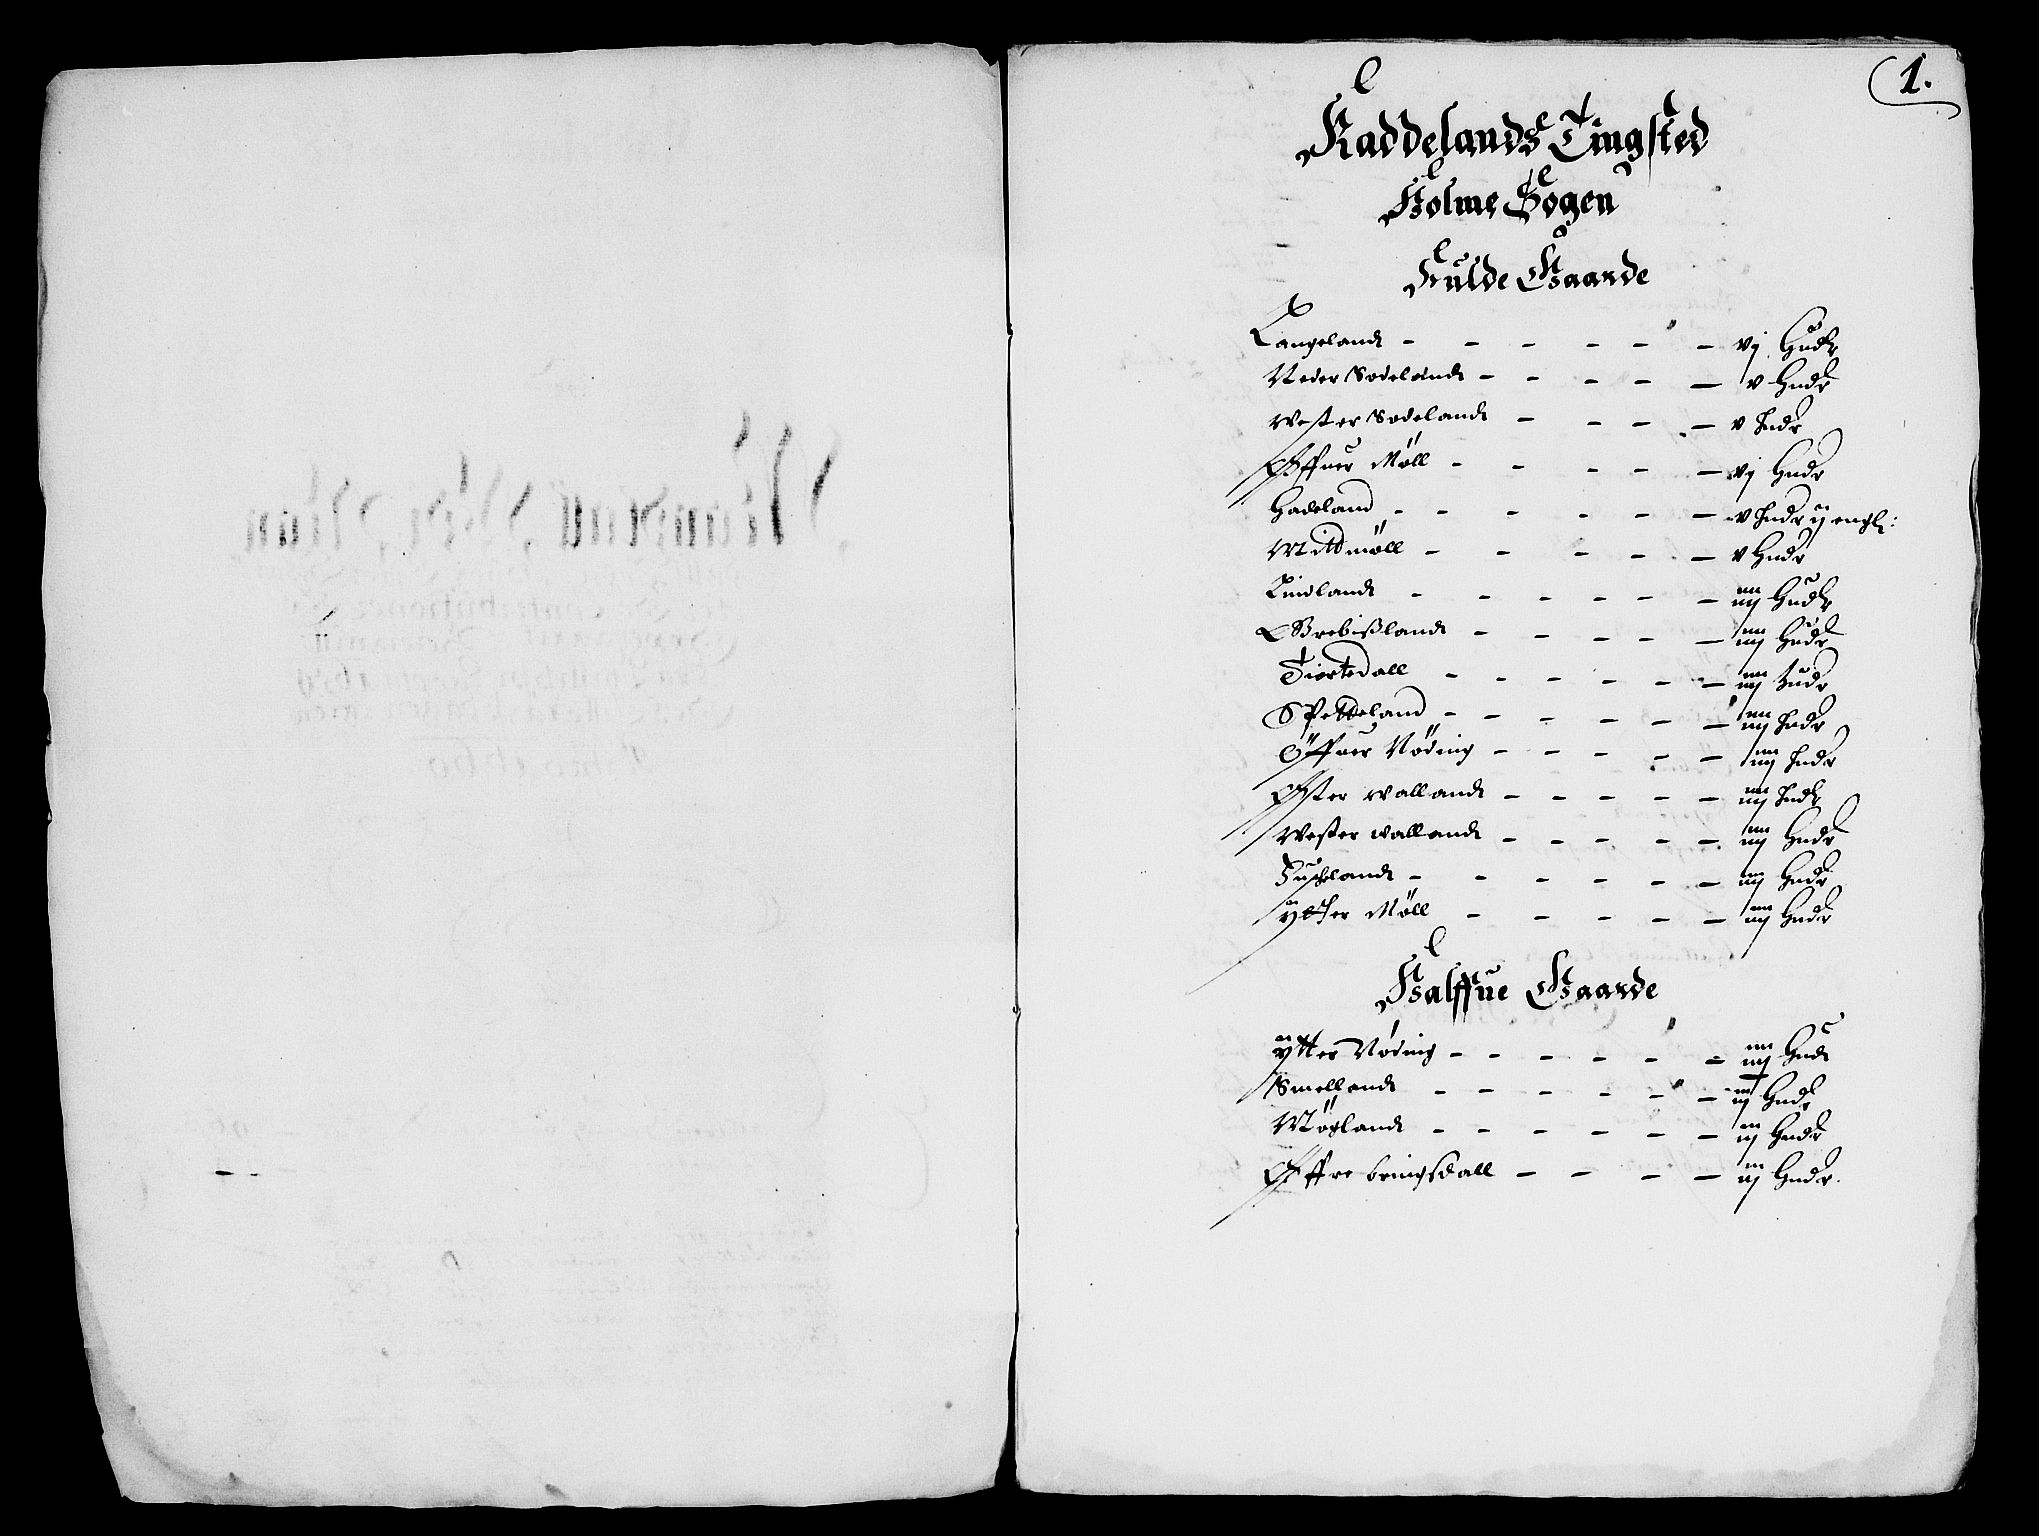 1.
Raddelands Tingsted
Holme Sogen
Fulde Gaarde
Langelandt - - - - - - vj Hudr
Neder Sodelandt - - - - - v Hudr
Wester Sodelandt - - - - v Hudr
Øffuer Møll - - - - - vj Hudr
Hadeland - - - - - - v Hudr ij engl:
Midmøll - - - - - v Hudr
Lindlandt - - - - - - iiij Hudr
Grebißlandt - - - - - iiij Hudr
Tiortedall - - - - - - iiij Hudr
Spetteland - - - - - - iiij Hudr
Øffuer Nøding - - - - - iiij Hudr
Øster wallandt - - - - - iiij Hudr
Wester wallandt - - - - - iiij Hudr
Fuschelandt - - - - - - iiij Hudr
ytter Møll - - - - - iiij Hudr
Halffue Gaarde
ytter Nøding - - - - - - iiij Hudr
Smellandt - - - - - - iij Hudr
Møglandt - - - - - - iij Hudr
Øffre bringsdall - - - - iij Hudr.